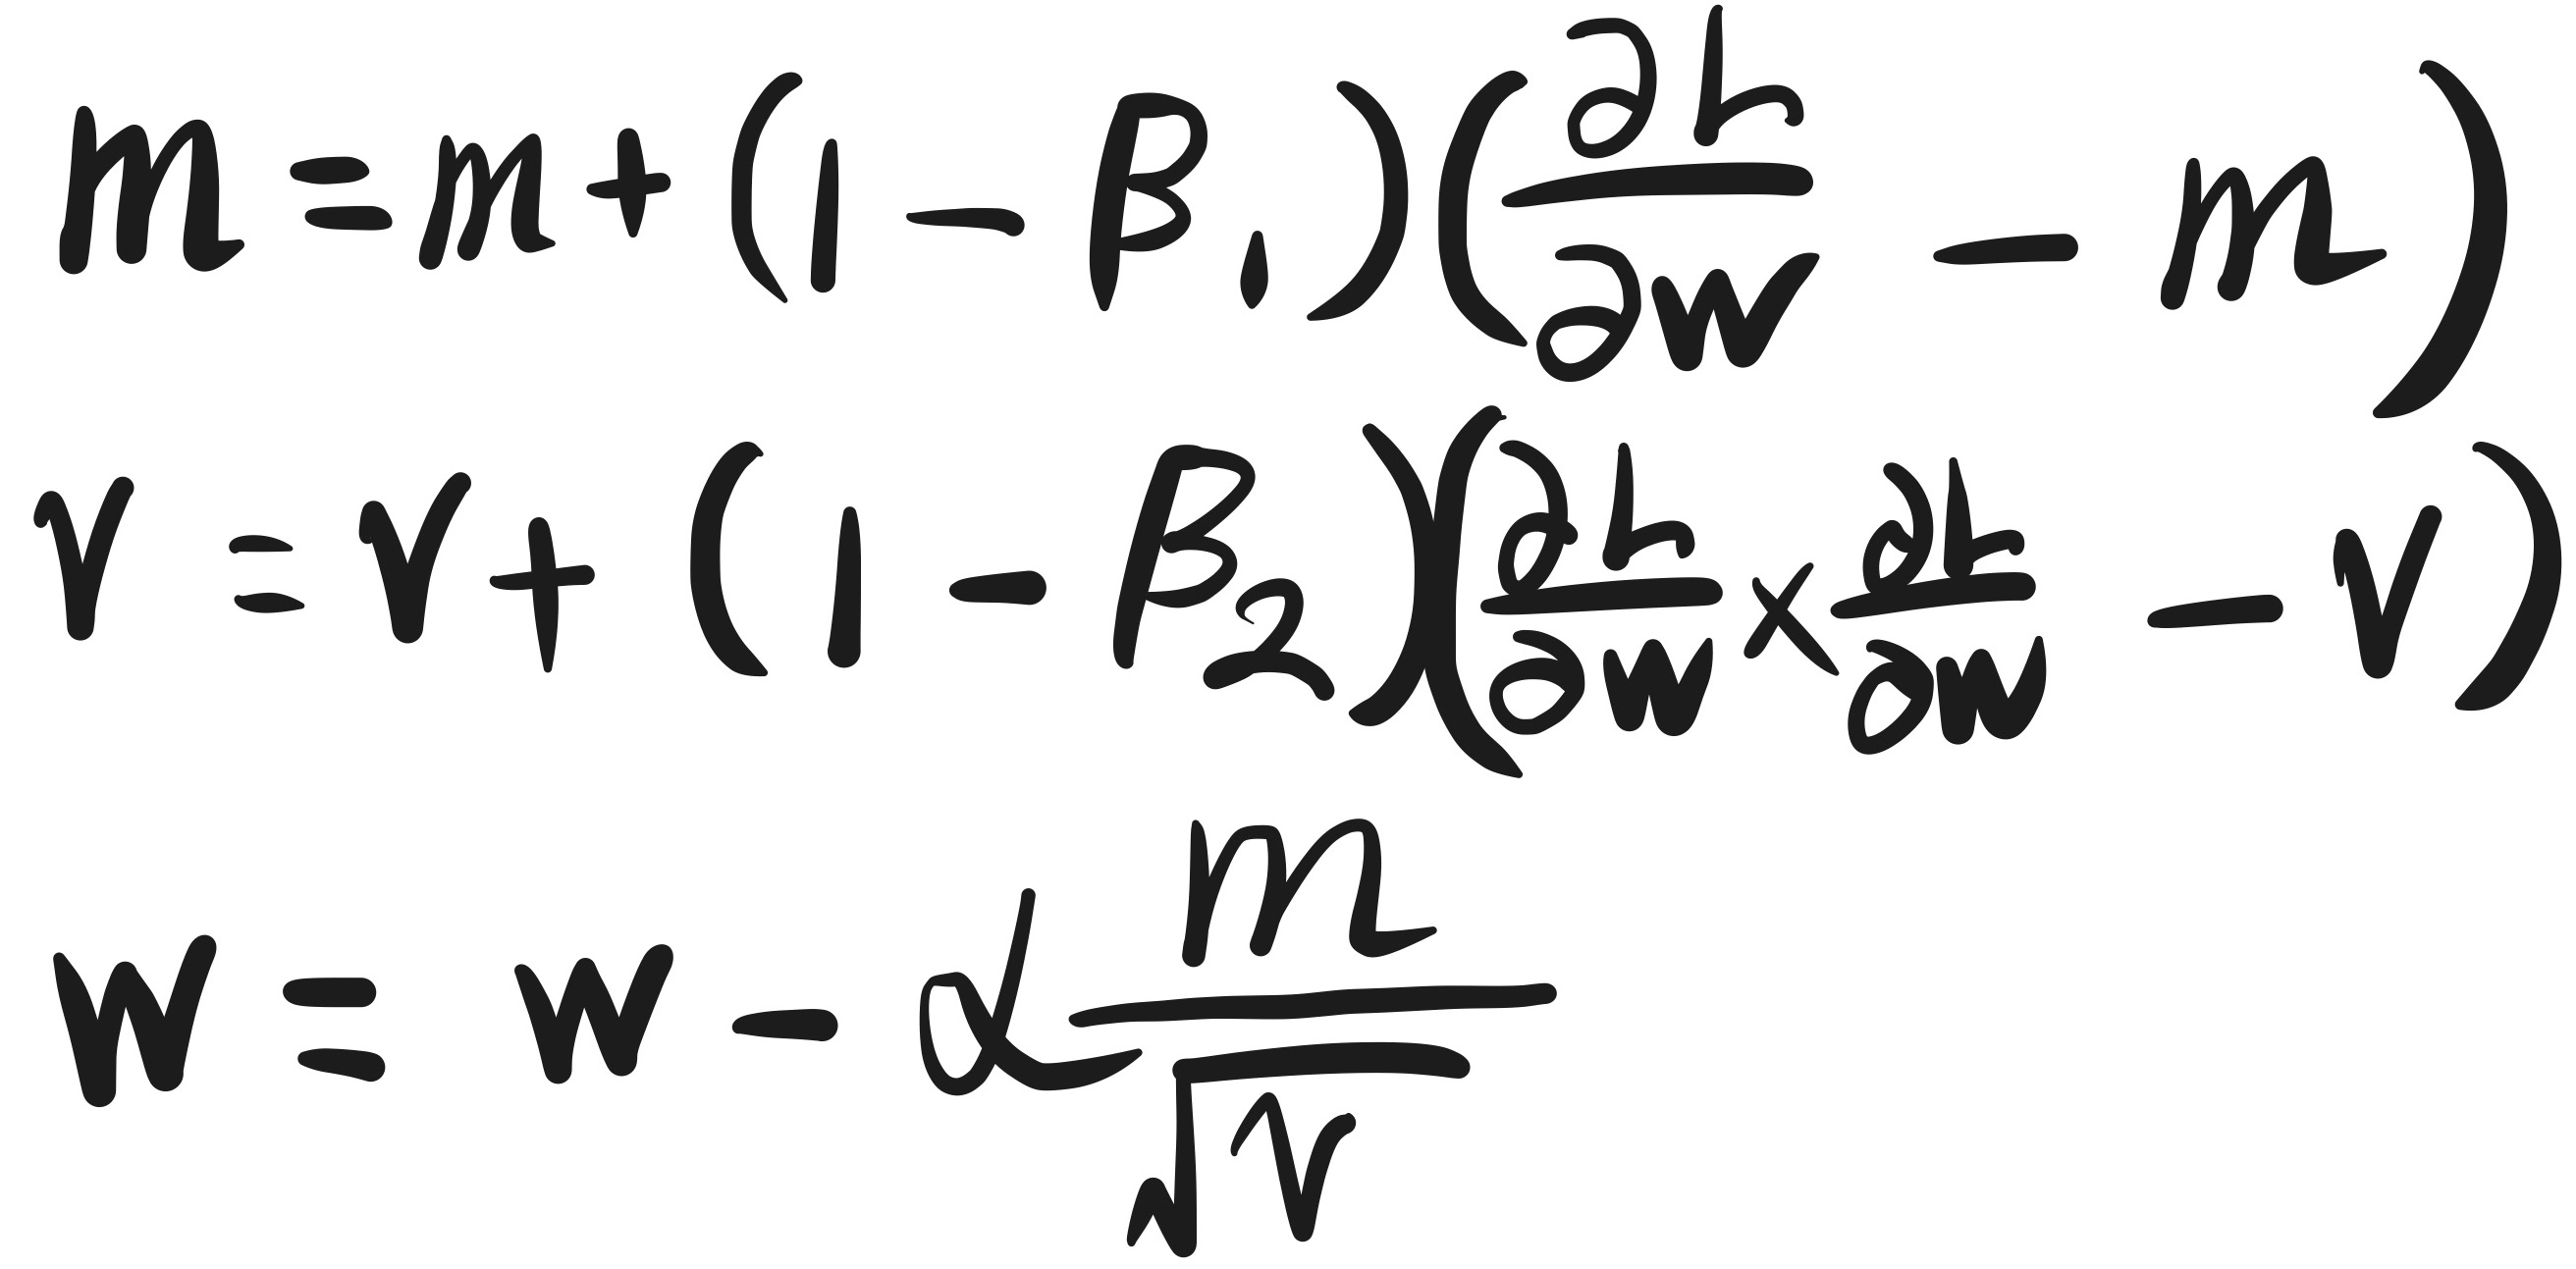 m = m + (1 - β₁)(∂L/∂w - m)
v = v + (1 - β₂)(∂L/∂w × ∂L/∂w - v)
w = w - α m/√v